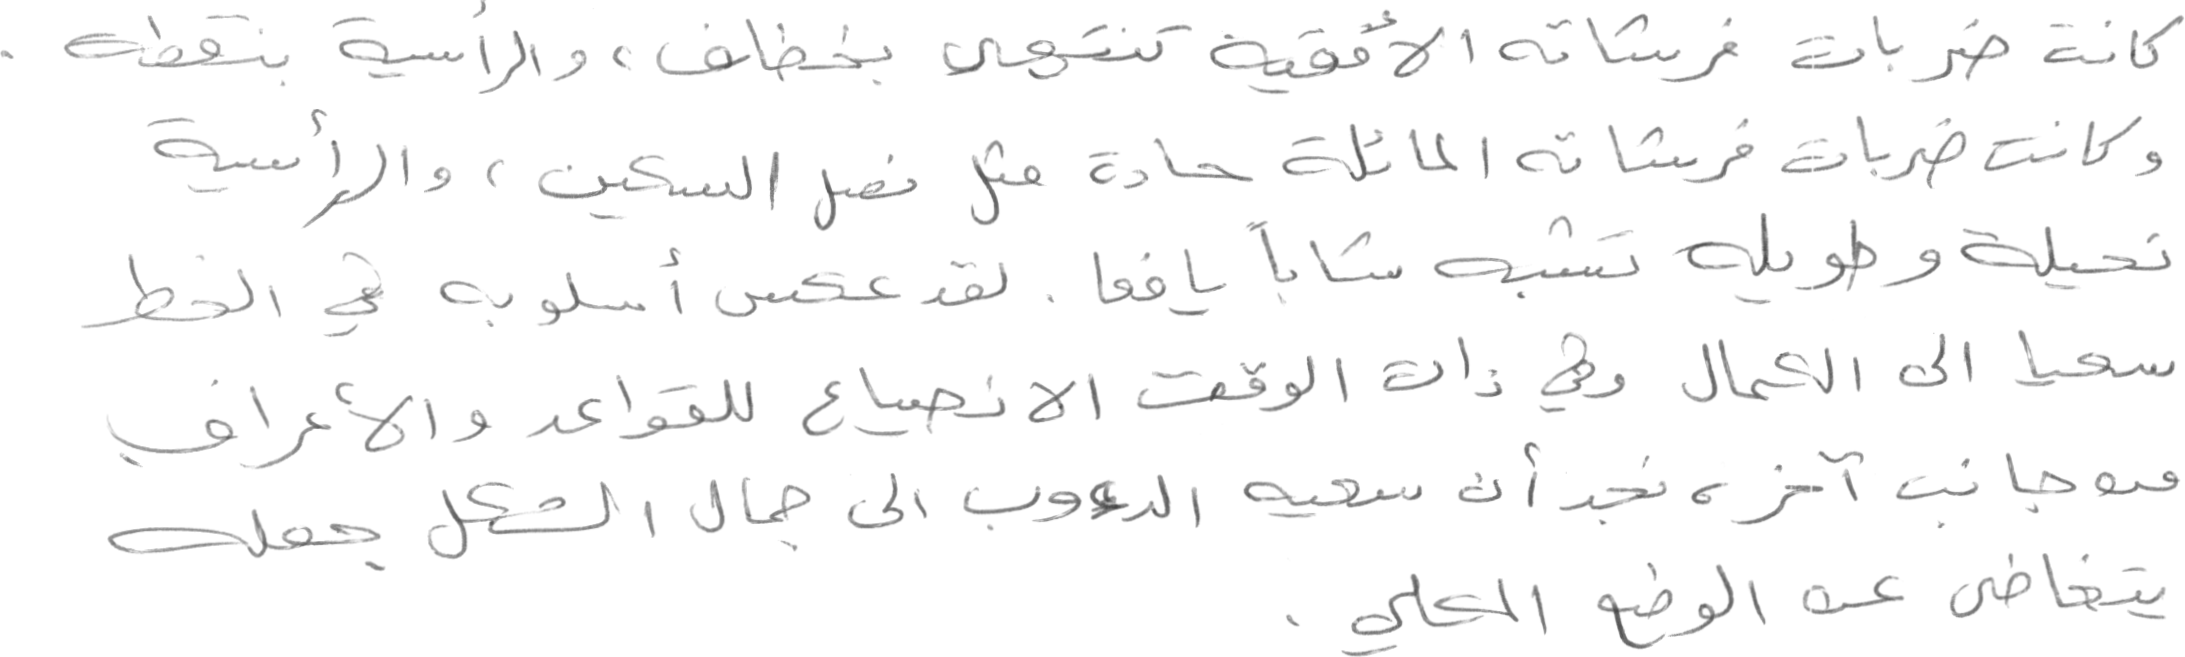 كانت ضربات فرشاته الأفقية تنتهى بخطاف، والرأسية بنقطه .
وكانت ضربات فرشاته المائلة حادة مثل نصل السكين، والرأسية
نحيلة وطويله تشبه شاباً يافعا . لقد عكس أسلوبه في الخط
سعيا الى الكمال وفي ذات الوقت الانصياع للقواعد والأعراف
ومن جانب آخر، نجد أن سعيه الدءوب الى جمال الشكل جعله
يتغاضى عن الوضع الكلي .